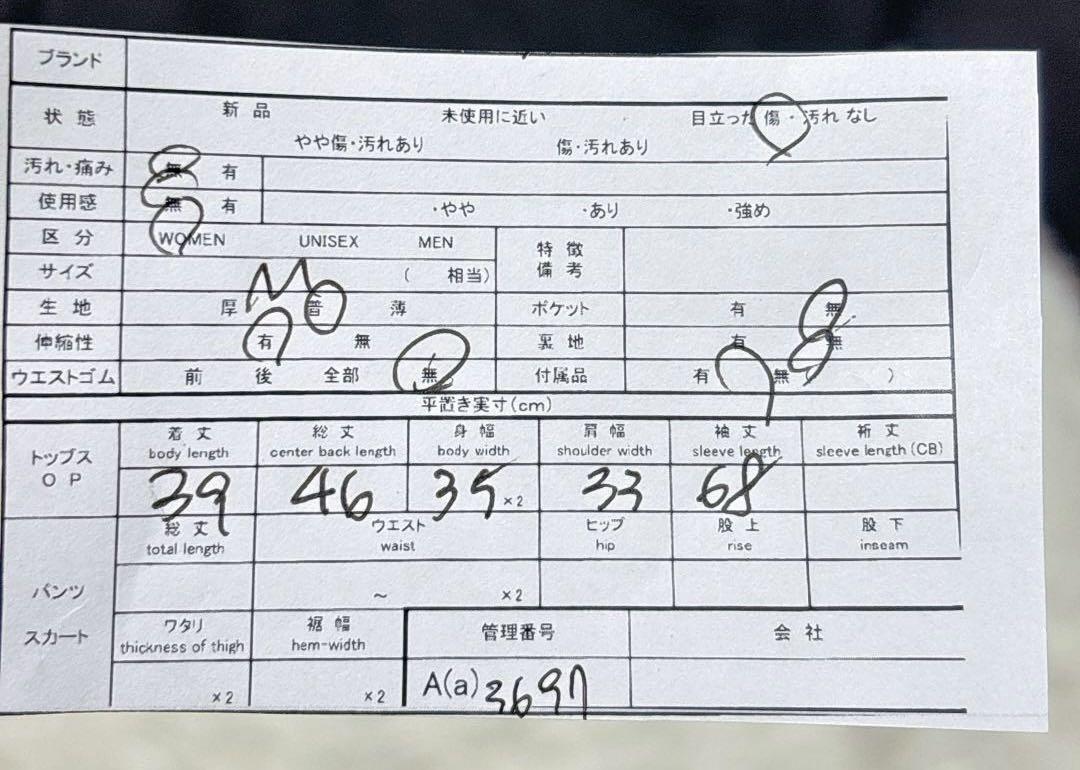 ブランド
状態 新品 未使用に近い 目立った 傷・汚れ なし
やや傷・汚れあり 傷・汚れあり
汚れ・痛み 無 有
使用感 無 有 ・やや ・あり ・強め
区分 WOMEN UNISEX MEN 特徴
備考
サイズ M ( 相当)
生地 厚 普 薄 ポケット 有 無
伸縮性 有 無 裏地 有 無
ウエストゴム 前 後 全部 無 付属品 有 無 ( )
平置き実寸(cm)
トップス
OP
着丈 総丈 身幅 肩幅 袖丈 裄丈
body length center back length body width shoulder width sleeve length sleeve length (CB)
39 46 35 ×2 33 68
総丈 ウエスト ヒップ 股上 股下
total length waist hip rise inseam
パンツ ~ ×2
スカート
ワタリ 裾幅 管理番号 会社
thickness of thigh hem-width
×2 ×2 A(a) 3697